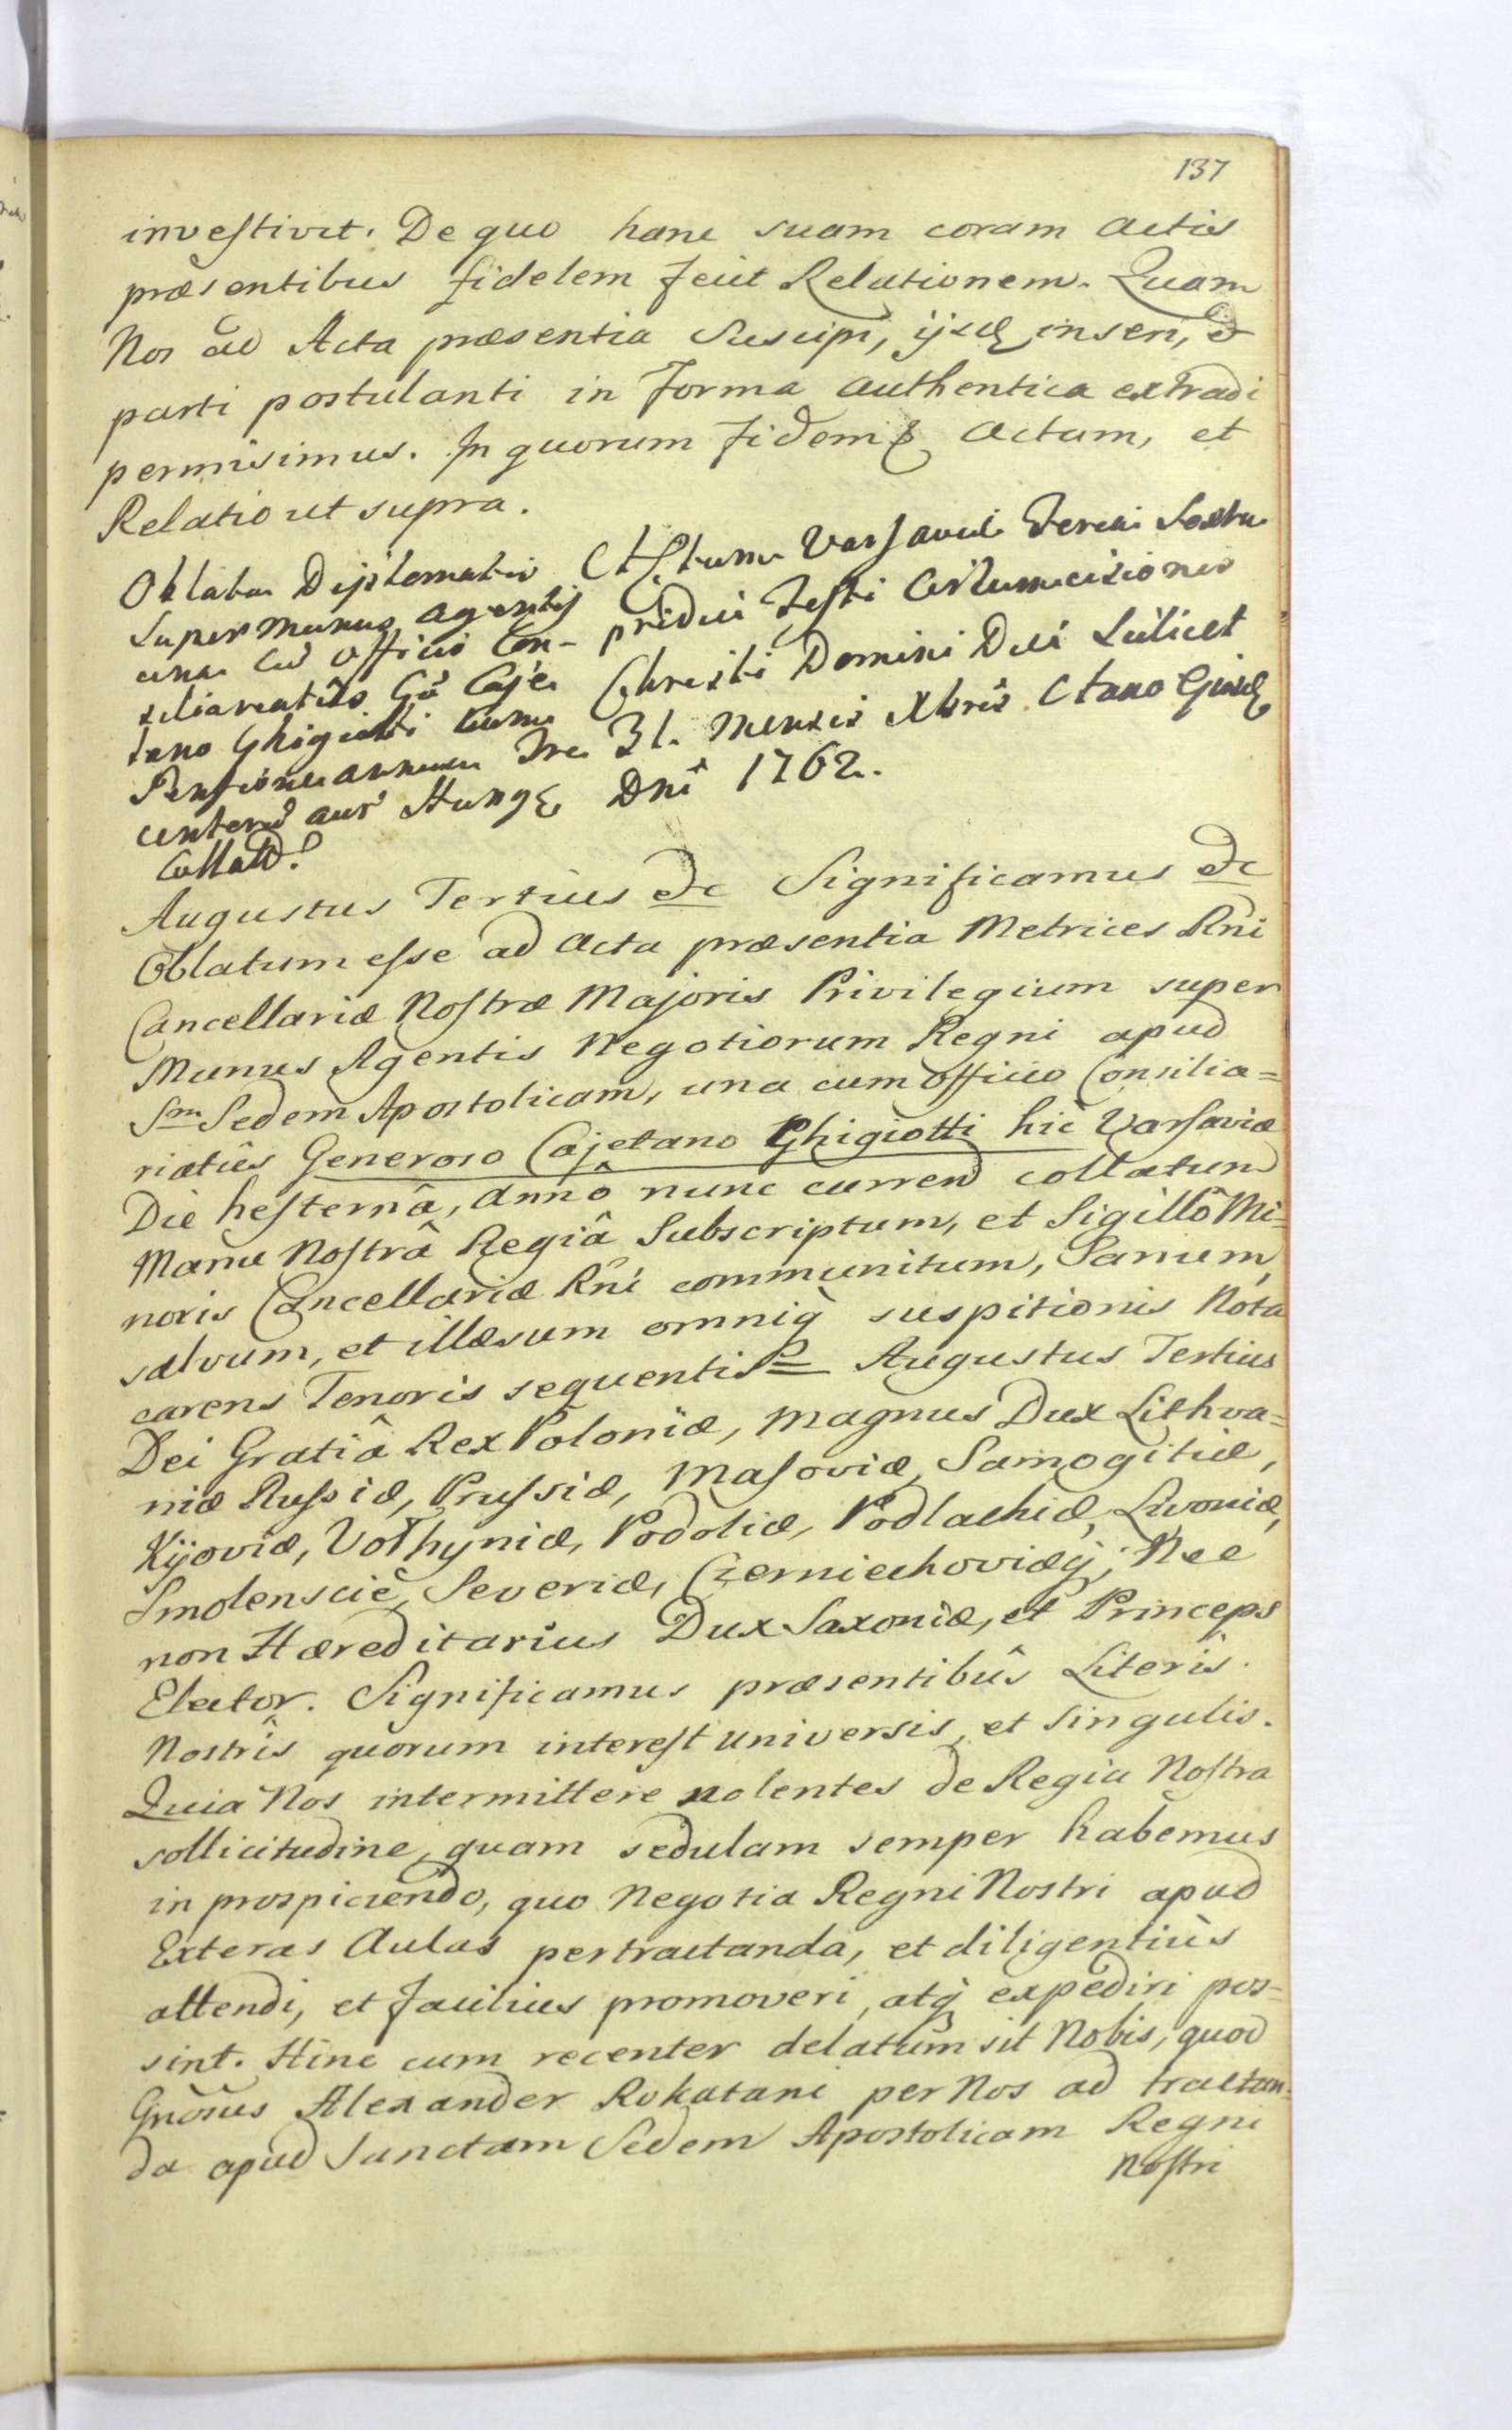 137
investivit. De quo hanc suam coram Actis
præsentibus fidelem fecit Relationem. Quam
Nos ad Acta præsentia Suscipi, ijsq inseri, et
parti postulanti in Forma authentica extradi
permisimus. In quorum Fidem Actum, et
Relatio ut supra.
Oblata Diplomatis
super munus agentis
una cũ officio Con-
siliariatûs Gõ Caje
tano Ghigiotti cum
Pensione annua Tre
centorũ aur Hung
Collatũ.
Actum Varsaviæ Feria Sexta
pridie Festi Circumcisionis
Christi Domini Die Scilicet
31. Mensis Xbris Anno Ejusdq
Dni 1762.
Augustus Tertius &c Significamus &c
Oblatum esse ad Acta præsentia Metrices Rni
Cancellariæ Nostræ Majoris Privilegium super
Munus Agentis Negotiorum Regni apud
Sm Sedem Apostolicam, una cum officio Consilia=
riatûs Generoso Cajetano Ghigiotti hic Varsaviæ
Die hesternâ, annô nunc curren collatum
Manu Nostrâ Regiâ Subscriptum, et Sigillô Mi=
noris Cancellariæ Rni communitum, Sanum,
salvum, et illæsum omniq̀ suspitionis Nóta
carens Tenoris sequentis = Augustus Tertius
Dei Gratiâ Rex Poloniæ, Magnus Dux Lithva=
niæ Russiæ, Prussiæ, Masoviæ, Samogitiæ,
Kijoviæ, Volhyniæ, Podoliæ, Podlachiæ, Livoniæ,
Smolensciæ, Severiæ, Czerniechoviæq̀, Nec
non Hæreditarius Dux Saxoniæ, et Princeps
Elector. Significamus præsentibûs Literis
Nostrîs quorum interest universis, et singulis.
Quia Nos intermittere nolentes de Regia Nostra
sollicitudine, quam sedulam semper habemus
in prospiciendo, quo Negotia Regni Nostri apud
Exteras Aulas pertractanda, et diligentiùs
attendi, et facilius promoveri, atq̀ expediri pos=
sint. Hinc cum recenter delatum sit Nobis, quod
Gnõsus Alexander Rokatani per Nos ad tractan=
da apud Sanctam Sedem Apostolicam Regni
Nostri